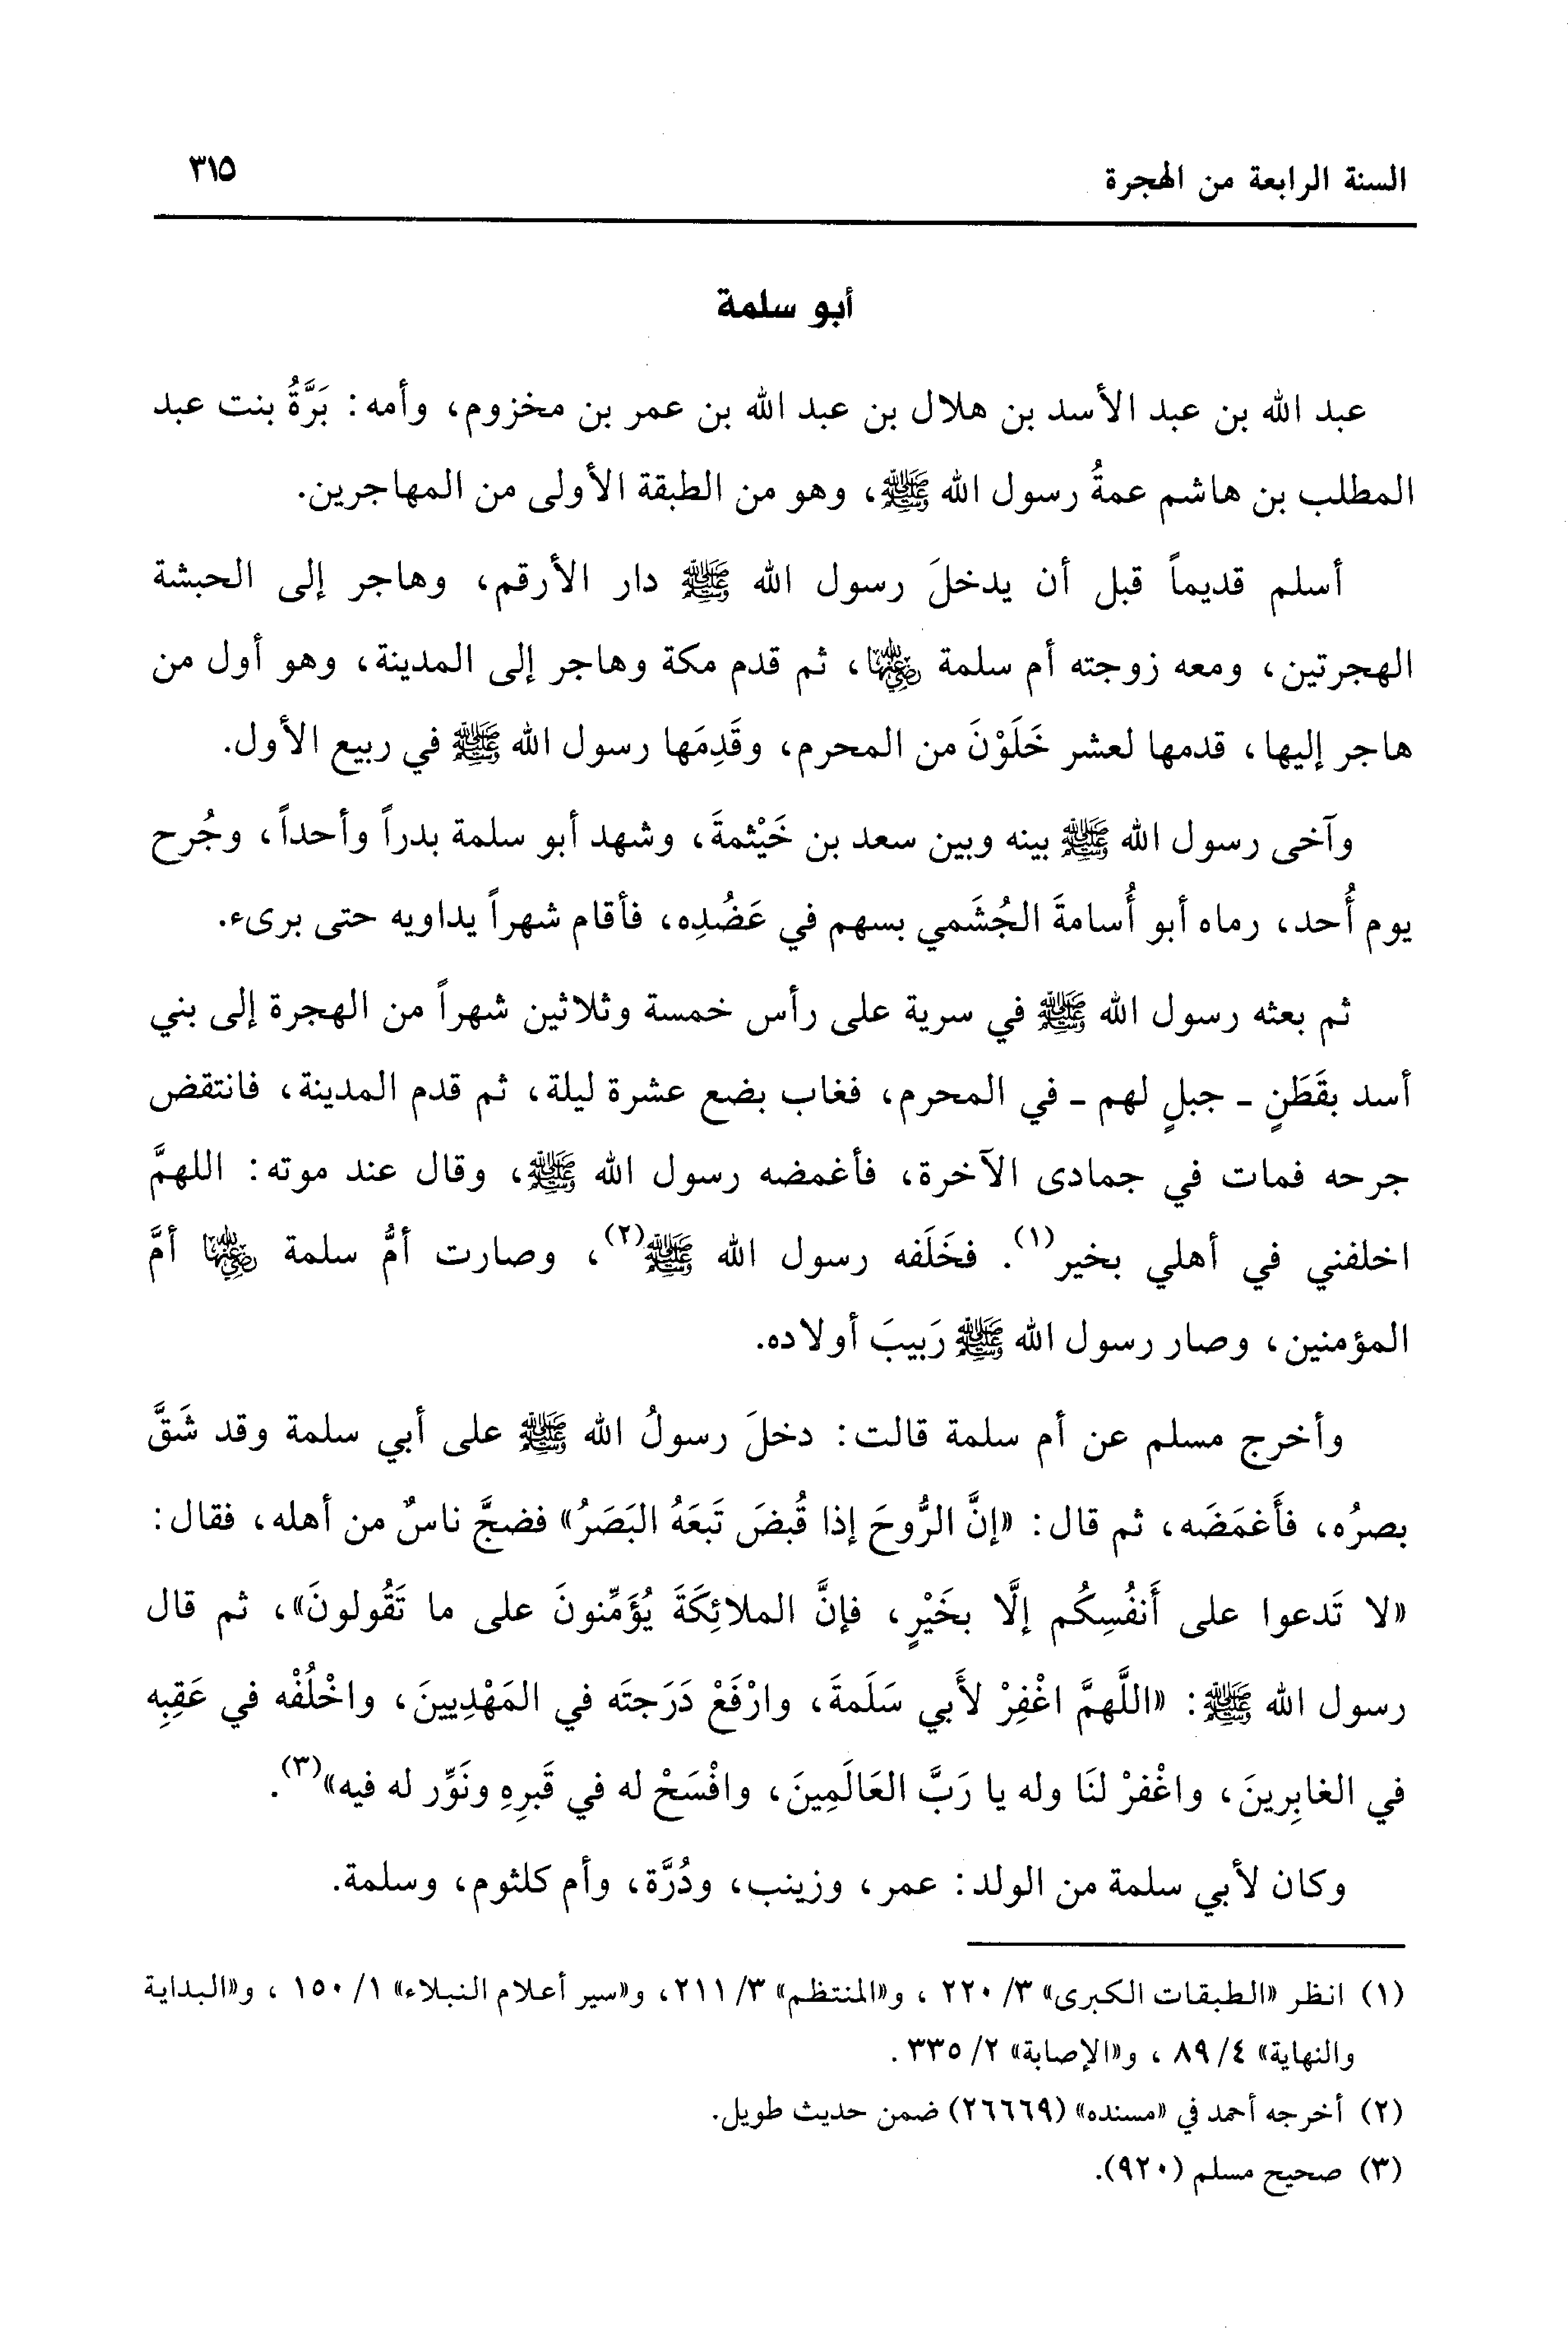 السنة الرابعة من الهجرة ٣١٥
أبو سلمة
عبد الله بن عبد الأسد بن هلال بن عبد الله بن عمر بن مخزوم، وأمه: بَرَّةُ بنت عبد
المطلب بن هاشم عمةُ رسول الله ﷺ، وهو من الطبقة الأولى من المهاجرين.
أسلم قديماً قبل أن يدخلَ رسول الله ﷺ دار الأرقم، وهاجر إلى الحبشة
الهجرتين، ومعه زوجته أم سلمة رضي الله عنها، ثم قدم مكة وهاجر إلى المدينة، وهو أول من
هاجر إليها، قدمها لعشر خَلَوْنَ من المحرم، وقَدِمَها رسول الله ﷺ في ربيع الأول.
وآخى رسول الله ﷺ بينه وبين سعد بن خَيْثمةَ، وشهد أبو سلمة بدراً وأحداً، وجُرح
يوم أُحد، رماه أبو أُسامةَ الجُشَمي بسهم في عَضُدِه، فأقام شهراً يداويه حتى برىء.
ثم بعثه رسول الله ﷺ في سرية على رأس خمسة وثلاثين شهراً من الهجرة إلى بني
أسد بقَطَنٍ ـ جبلٍ لهم ـ في المحرم، فغاب بضع عشرة ليلة، ثم قدم المدينة، فانتقض
جرحه فمات في جمادى الآخرة، فأغمضه رسول الله ﷺ، وقال عند موته: اللهمَّ
اخلفني في أهلي بخير(١). فخَلَفه رسول الله ﷺ(٢)، وصارت أمُّ سلمة رضي الله عنها أمَّ
المؤمنين، وصار رسول الله ﷺ رَبيبَ أولاده.
وأخرج مسلم عن أم سلمة قالت: دخلَ رسولُ الله ﷺ على أبي سلمة وقد شَقَّ
بصرُه، فأَغمَضَه، ثم قال: «إنَّ الرُّوحَ إذا قُبضَ تَبعَهُ البَصَرُ» فضجَّ ناسٌ من أهله، فقال:
«لا تَدعوا على أَنفُسِكُم إلَّا بخَيْرٍ، فإنَّ الملائِكَةَ يُؤَمِّنونَ على ما تَقُولونَ»، ثم قال
رسول الله ﷺ: «اللَّهمَّ اغْفِرْ لأَبي سَلَمةَ، وارْفَعْ دَرَجتَه في المَهْدِيينَ، واخْلُفْه في عَقِبِه
في الغابِرينَ، واغْفرْ لنَا وله يا رَبَّ العَالَمِينَ، وافْسَحْ له في قَبرِهِ ونَوِّر له فيه»(٣).
وكان لأبي سلمة من الولد: عمر، وزينب، ودُرَّة، وأم كلثوم، وسلمة.
(١) انظر «الطبقات الكبرى» ٣/ ٢٢٠ ، و«المنتظم» ٣/ ٢١١، و«سير أعلام النبلاء» ١/ ١٥٠ ، و«البداية
والنهاية» ٤/ ٨٩ ، و«الإصابة» ٢/ ٣٣٥ .
(٢) أخرجه أحمد في «مسنده» (٢٦٦٦٩) ضمن حديث طويل.
(٣) صحيح مسلم (٩٢٠).